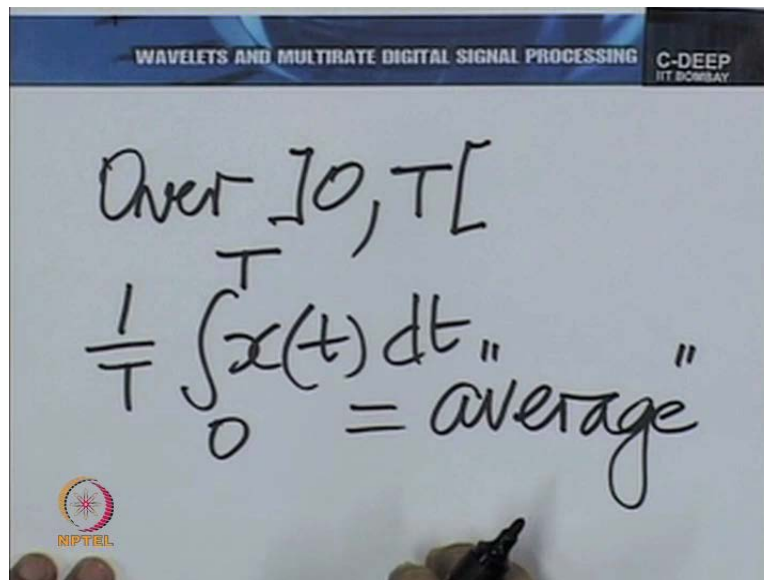 WAVELETS AND MULTIRATE DIGITAL SIGNAL PROCESSING
C-DEEP
IIT BOMBAY
Over ]0, T[
1/T ∫₀ᵀ x(t) dt
= "average"
NPTEL